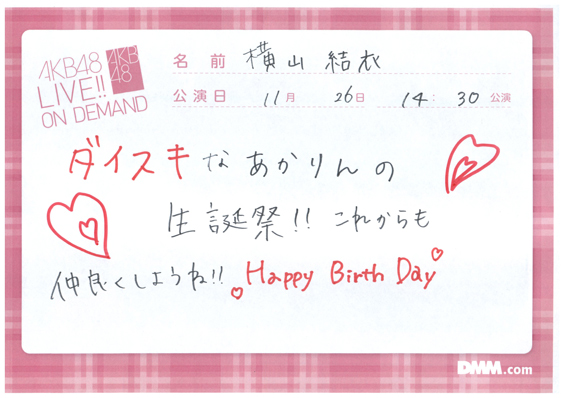 AKB48
LIVE!!
ON DEMAND
AKB
48
名前 横山結衣
公演日 11月 26日 14:30公演
ダイスキなあかりんの
生誕祭!! これからも
仲良くしようね!! Happy Birth Day
DMM.com